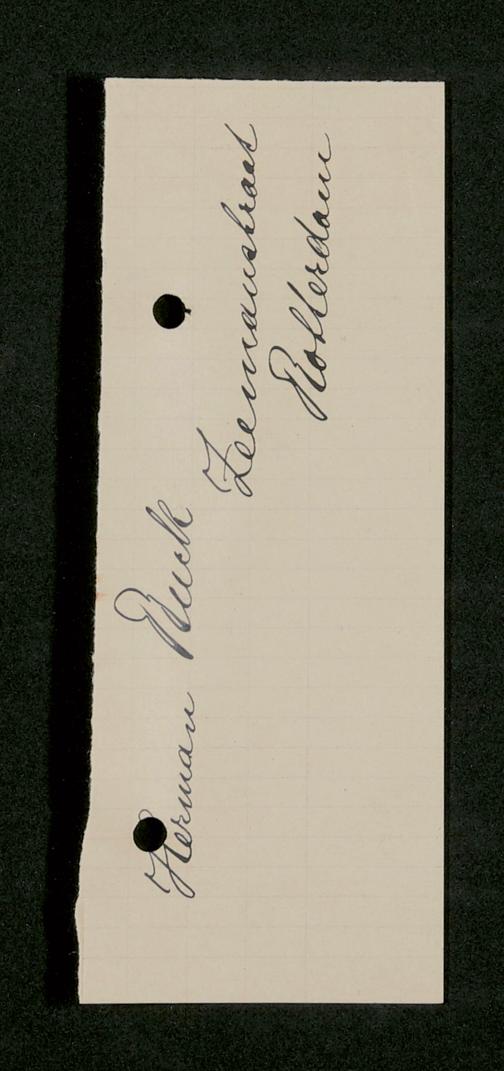 Herman Ruck
Zeemanstraat
Rotterdam